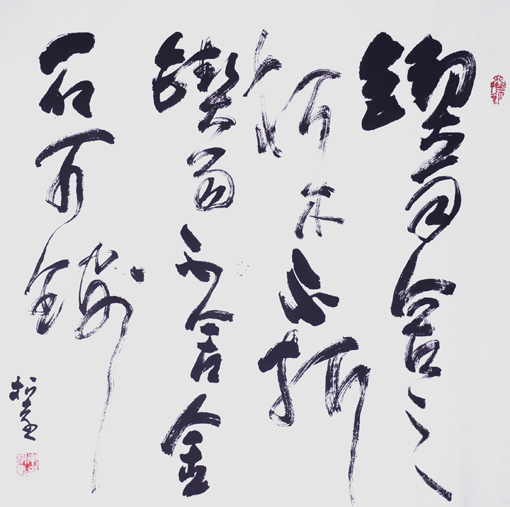 鍥而舍之
朽木不折
鍥而不舍金
石可鏤
松